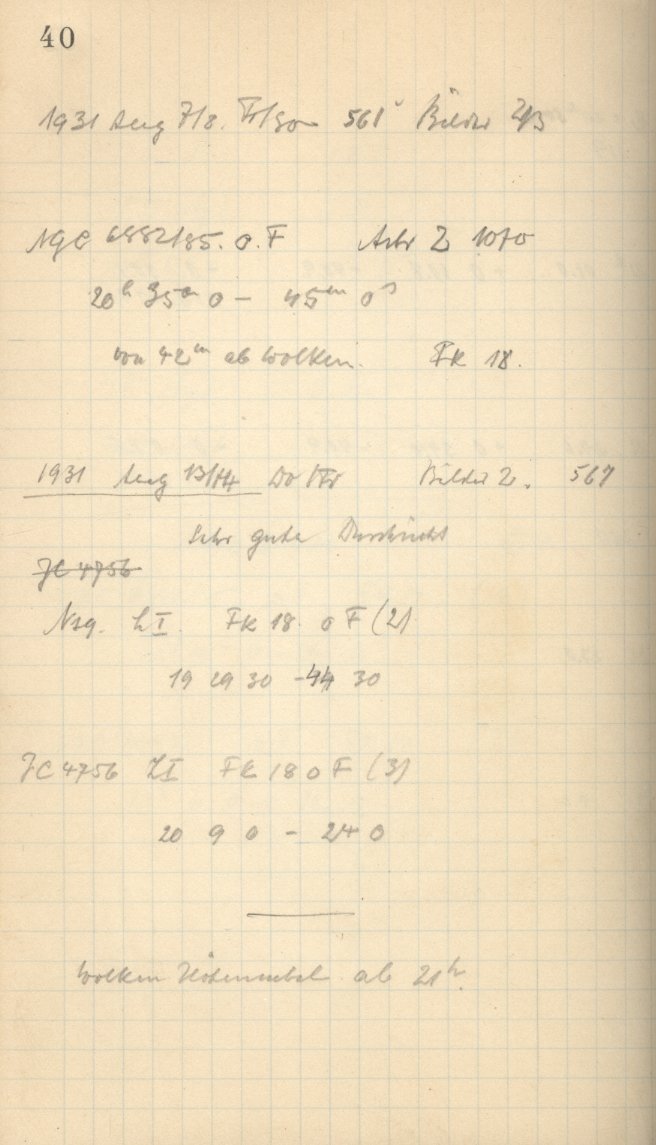 40
1931 Aug 7/8. Fr/So 561 Bilder 2/3
NGC 6882/85. o. F Astr Z 1070
20h 35m 0 – 45m 0s
von 42m ab Wolken. FK 18.
1931 Aug 13/14 Do/Fr Bilder 2. 567
Sehr gute Durchsicht
JC 4756
FK 18. o F (2)
19 29 30 – 44 30
JC 4756 FK 18 o F (3)
20 9 0 – 24 0
Wolken Höhennebel ab 21h.